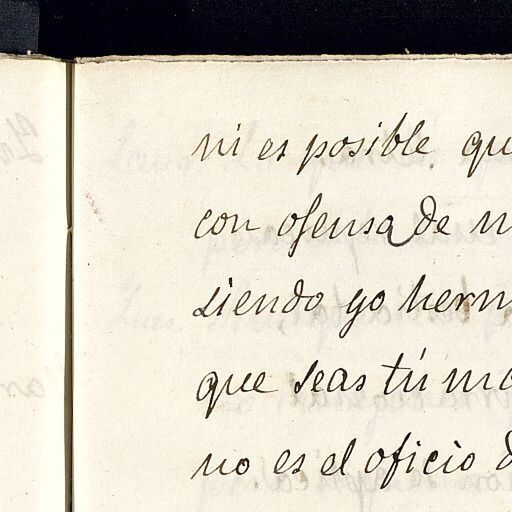 ni es posible qu
con ofensa de n
siendo yo herm
que seas tú ma
no es el oficio d